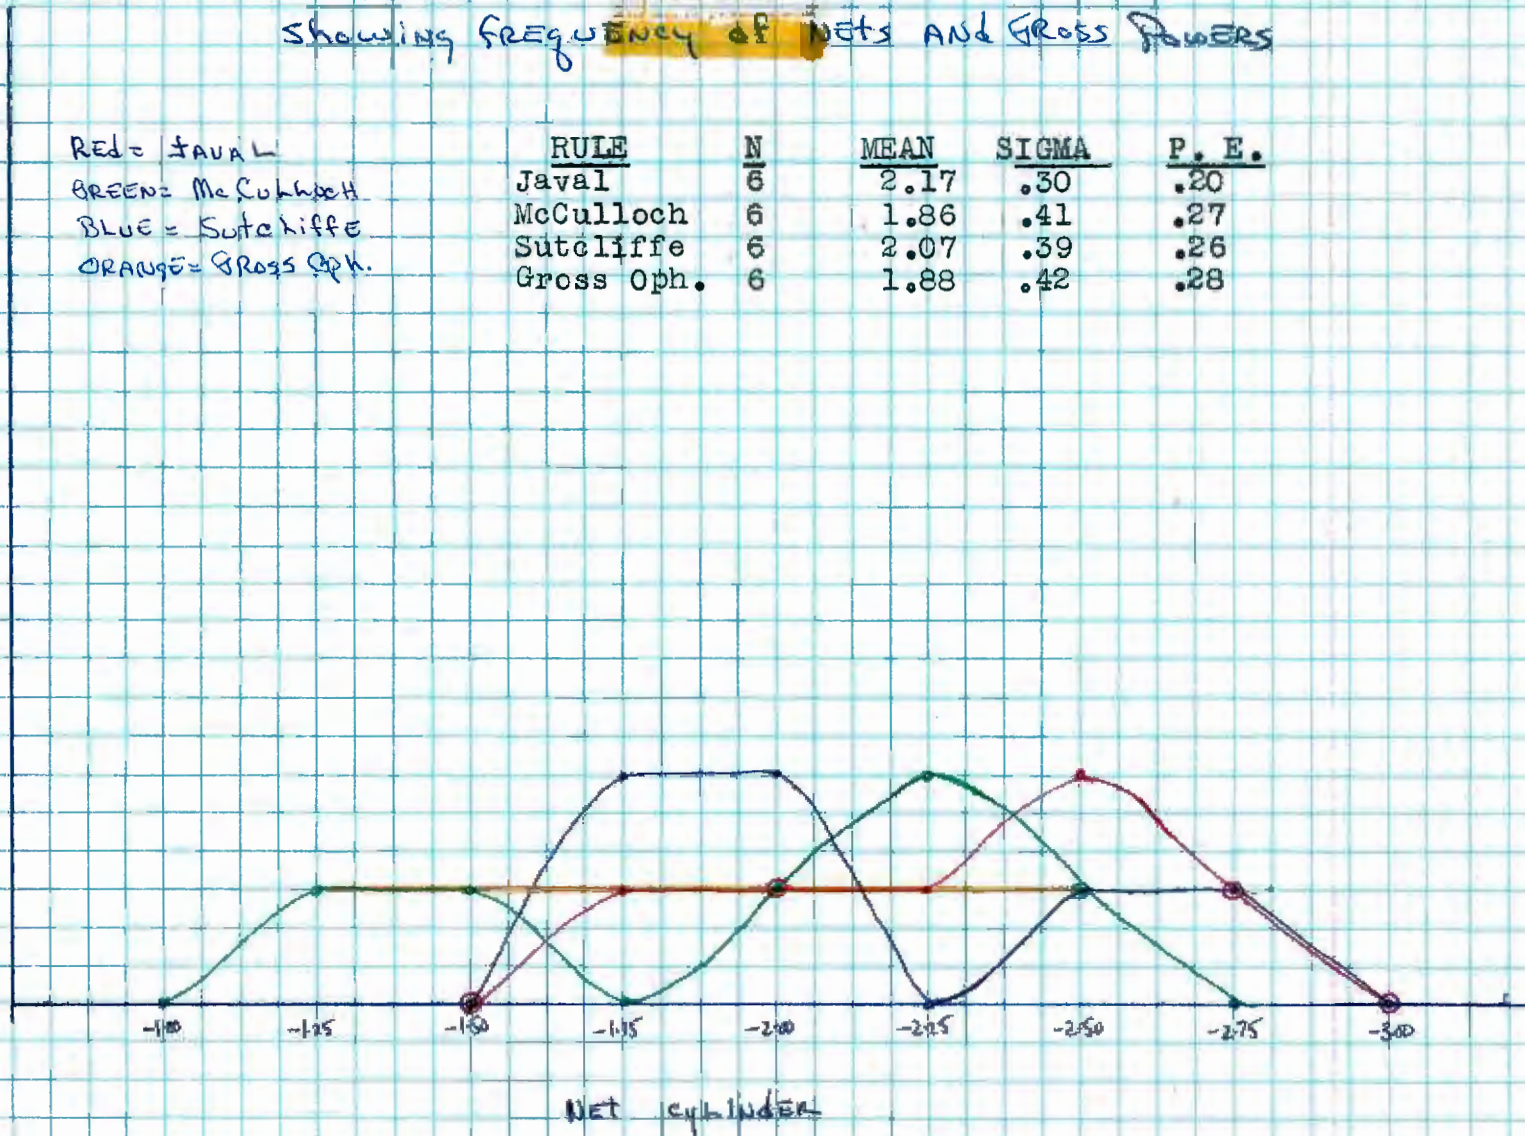 Showing Frequency of Nets And Gross Powers
Red = Javal
Green = McCulloch
Blue = Sutcliffe
Orange = Gross Oph.
RULE N MEAN SIGMA P. E.
Javal 6 2.17 .30 .20
McCulloch 6 1.86 .41 .27
Sutcliffe 6 2.07 .39 .26
Gross Oph. 6 1.88 .42 .28
-1.00 -1.25 -1.50 -1.75 -2.00 -2.25 -2.50 -2.75 -3.00
Net Cylinder